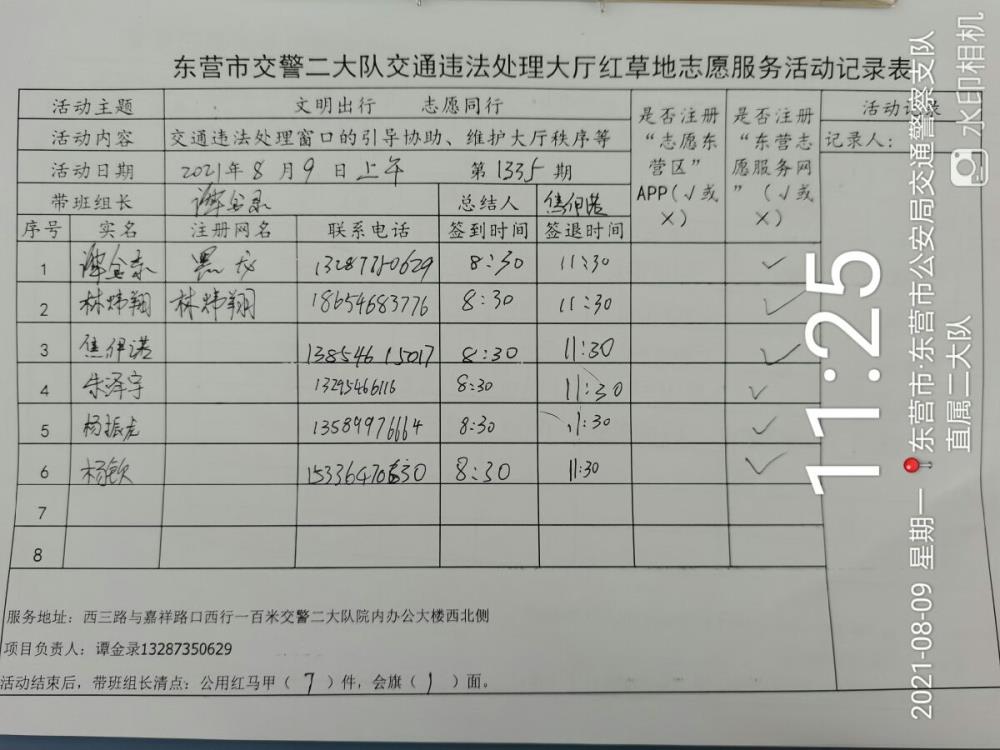 东营市交警二大队交通违法处理大厅红草地志愿服务活动记录表
活动主题 文明出行 志愿同行 是否注册“志愿东营区”APP(√或×) 是否注册“东营志愿服务网”(√或×) 活动记录
活动内容 交通违法处理窗口的引导协助、维护大厅秩序等 记录人：
活动日期 2021年8月9日上午 第1335期
带班组长 谭金录 总结人 焦伊诺
序号 实名 注册网名 联系电话 签到时间 签退时间
1 谭金录 8:30 11:30 ✓
2 林炜翔 林炜翔 18654683776 8:30 11:30 ✓
3 焦伊诺 13854615017 8:30 11:30 ✓
4 朱泽宇 13295466116 8:30 11:30 ✓
5 杨振虎 13589976664 8:30 11:30 ✓
6 杨钦 8:30 11:30 ✓
7
8
服务地址：西三路与嘉祥路口西行一百米交警二大队院内办公大楼西北侧
项目负责人：谭金录13287350629
活动结束后，带班组长清点：公用红马甲（7）件，会旗（1）面。
11:25
2021-08-09 星期一 东营市·东营市公安局交通警察支队
直属二大队
水印相机